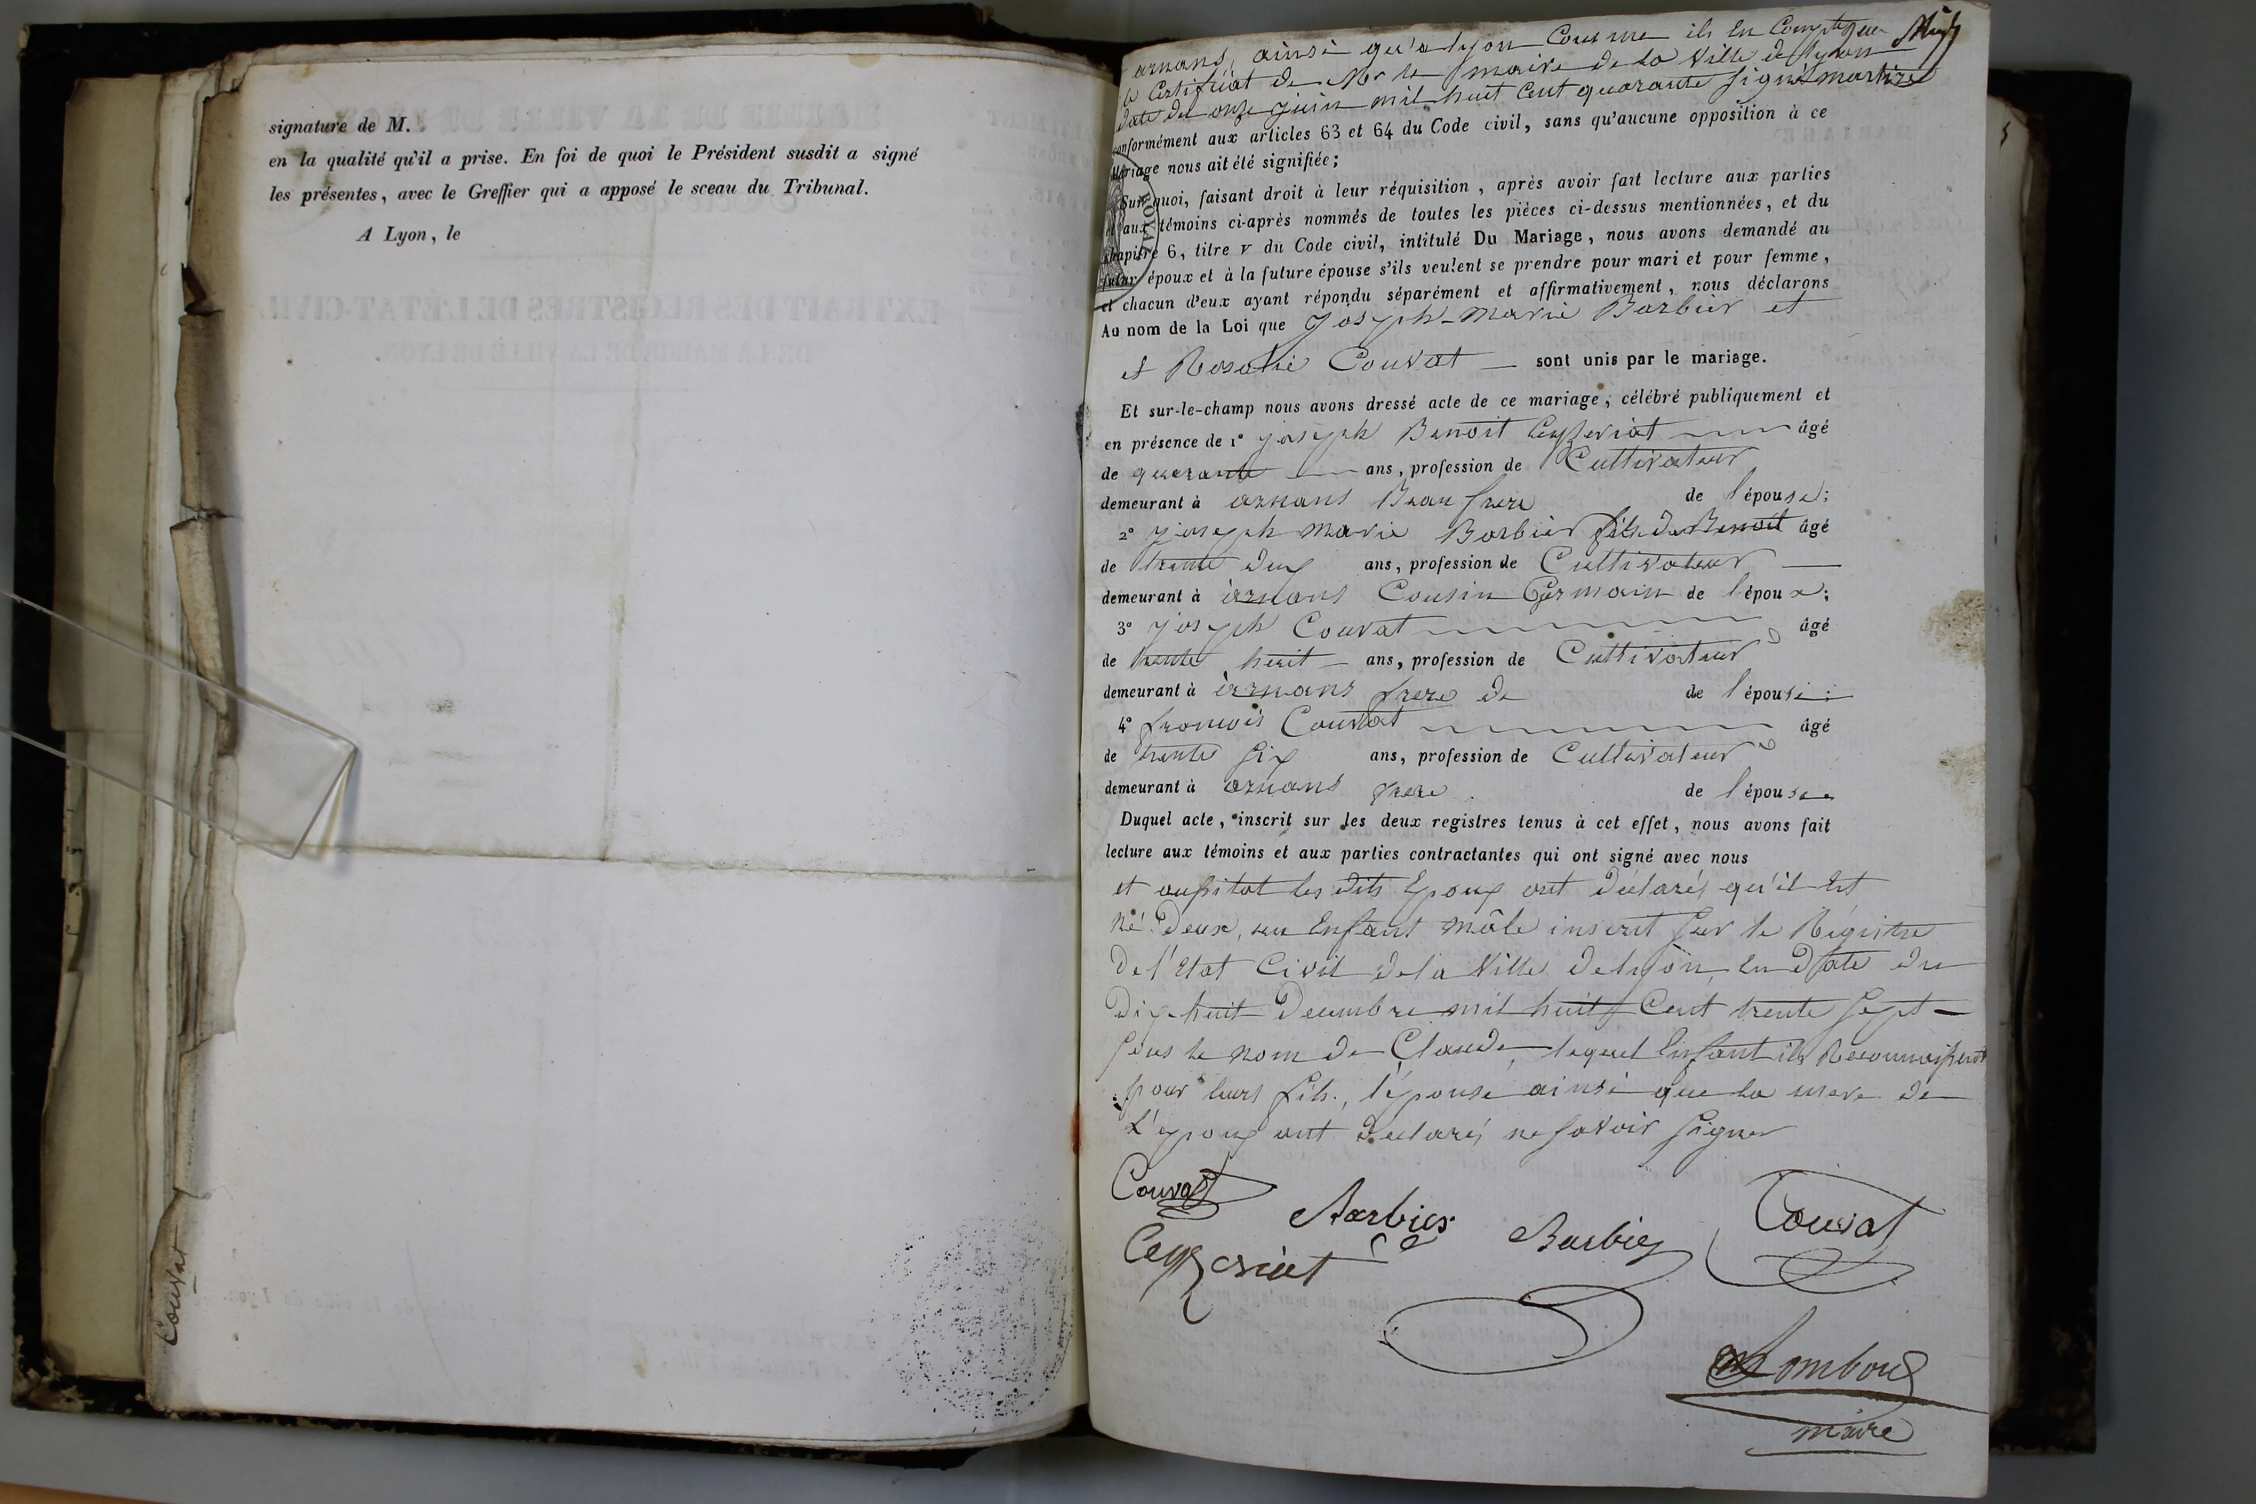 signature de M.
en la qualité qu'il a prise. En foi de quoi le Président susdit a signé
les présentes, avec le Greffier qui a apposé le sceau du Tribunal.
A Lyon, le
Couvat
arnans, ainsi qu'a lyon comme il en Conste par
le Certificat de Mr le maire de la Ville de lyon
date du onze juin mil huit cent quarante signé martin
conformément aux articles 63 et 64 du Code civil, sans qu'aucune opposition à ce
Mariage nous ait été signifiée;
Sur quoi, faisant droit à leur réquisition, après avoir fait lecture aux parties
et aux témoins ci-après nommés de toutes les pièces ci-dessus mentionnées, et du
chapitre 6, titre v du Code civil, intitulé Du Mariage, nous avons demandé au
futur époux et à la future épouse s'ils veulent se prendre pour mari et pour femme,
et chacun d'eux ayant répondu séparément et affirmativement, nous déclarons
Au nom de la Loi que Joseph-Marie Barbier et
et Rosalie Couvat — sont unis par le mariage.
Et sur-le-champ nous avons dressé acte de ce mariage, célébré publiquement et
en présence de 1° joseph Benoit Ceyzeriat âgé
de quarante ans, profession de Cultivateur
demeurant à arnans Beau frere de l'épouse;
2° joseph marie Barbier fils de Benoit âgé
de trente deux ans, profession de Cultivateur
demeurant à arnans Cousin Germain de l'époux;
3° joseph Couvat âgé
de trente huit ans, profession de Cultivateur
demeurant à arnans frere de de l'épouse;
4° francois Couvat âgé
de trente six ans, profession de Cultivateur
demeurant à arnans frere de l'épouse
Duquel acte, inscrit sur les deux registres tenus à cet effet, nous avons fait
lecture aux témoins et aux parties contractantes qui ont signé avec nous
et aussitot les dits Epoux ont déclarés qu'il est
né deux, un Enfant mâle inscrit sur le Régistre
de l'Etat Civil de la Ville de lyon, en date du
dix-huit Decembre mil huit Cent trente sept —
sous le nom de Claude, lequel Enfant ils Reconnaissent
pour leurs fils, l'épouse ainsi que la mere de
L'epoux ont declarés ne savoir signer
Couvat
Barbier
Barbier
Couvat
Ceyzeriat
maire